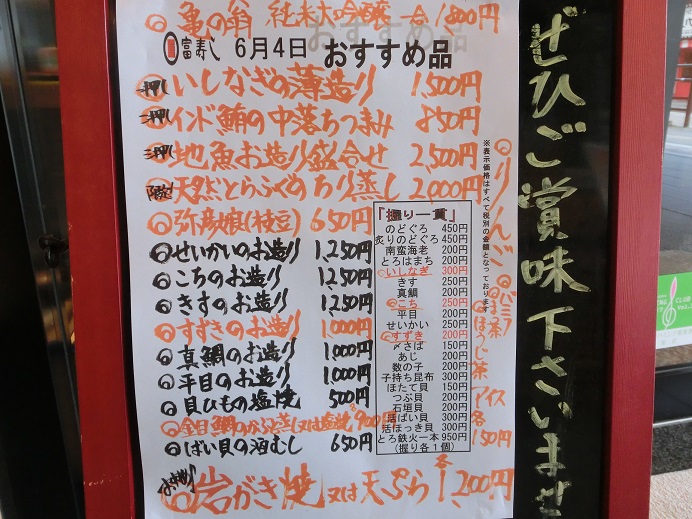 亀の翁 純米大吟醸 一合 1,800円
富寿し 6月4日 おすすめ品
一押し いしなぎの薄造り 1,500円
二押し インド鮪の中落ちつまみ 850円
三押し 地魚お造り盛合せ 2,500円
限定 天然とらふぐのちり蒸し 2,000円
弥彦娘(枝豆) 650円
せいかいのお造り 1,250円
こちのお造り 1,250円
きすのお造り 1,250円
すずきのお造り 1,000円
真鯛のお造り 1,000円
平目のお造り 1,000円
貝ひもの塩焼 500円
金目鯛のかぶと蒸し又は塩焼 900円
ばい貝の酒むし 650円
岩がき焼又は天ぷら 各1,200円
「握り一貫」
のどぐろ 450円
炙りのどぐろ 450円
南蛮海老 200円
とろはまち 200円
いしなぎ 300円
きす 250円
真鯛 200円
こち 250円
平目 200円
せいかい 250円
すずき 200円
〆さば 150円
あじ 200円
数の子 200円
子持ち昆布 300円
ほたて貝 150円
つぶ貝 200円
石垣貝 200円
活ばい貝 300円
活ほっき貝 300円
とろ鉄火一本 950円
(握り各1個)
※表示価格はすべて税別の金額となっております
りんご
バニラ
抹茶
ほうじ茶
アイス
各150円
ぜひご賞味下さいませ